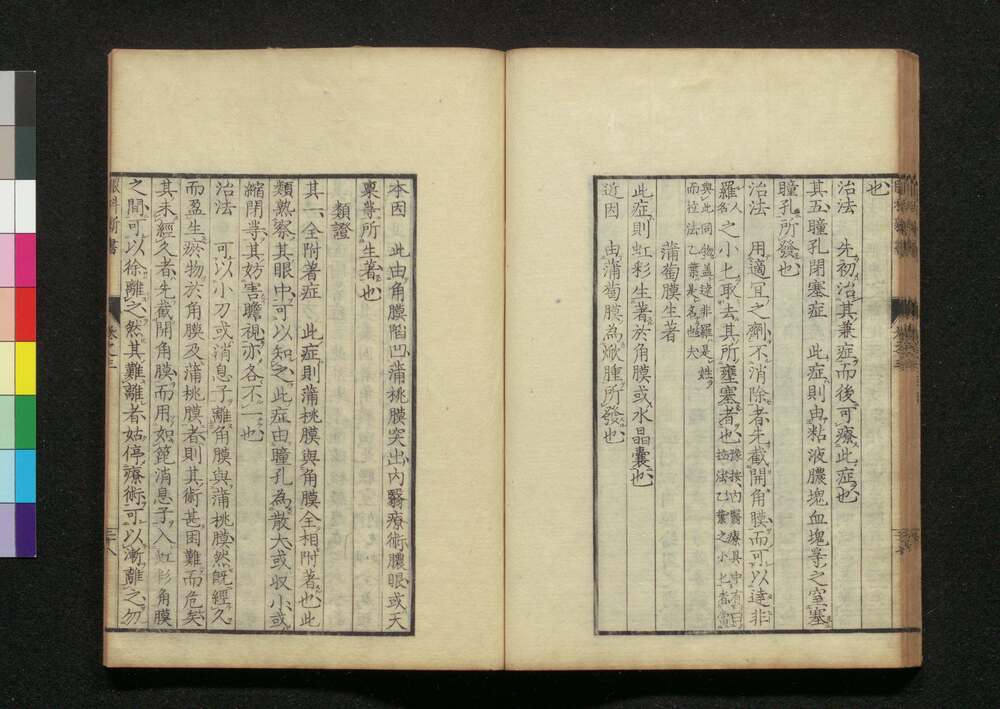 也
治法　先初治其兼症而後可療此症也
其五瞳孔閉塞症　此症則由粘液膿塊血塊等之窒塞
瞳孔所發也
治法　用適宜之劑不消除者先截開角膜而可以達非
羅人名之小匕取去其所壅塞者也
與此同物蓋達非羅是姓
而拉法乙葉是名也大
蒲萄膜生著
此症則虹彩生著於角膜或水晶囊也
近因　由蒲萄膜為焮腫所發也
本因　此由角膜陷凹蒲桃膜突出內醫療術膿眼或天
稟等所生著也
類證
其一全附著症　此症則蒲桃膜與角膜全相附著也此
類熟察其眼中可以知之此症由瞳孔為散大或収小或
縮閉等其妨害瞻視亦各不一也
治法　可以小刀或消息子離角膜與蒲桃膜然既經久
而盈生瘀物於角膜及蒲桃膜者則其術甚困難而危矣
其未經久者先截開角膜而用如篦消息子入虹彩角膜
之間可以徐離之然其難離者姑停療術可以漸離之勿
眼科新書
卷之三